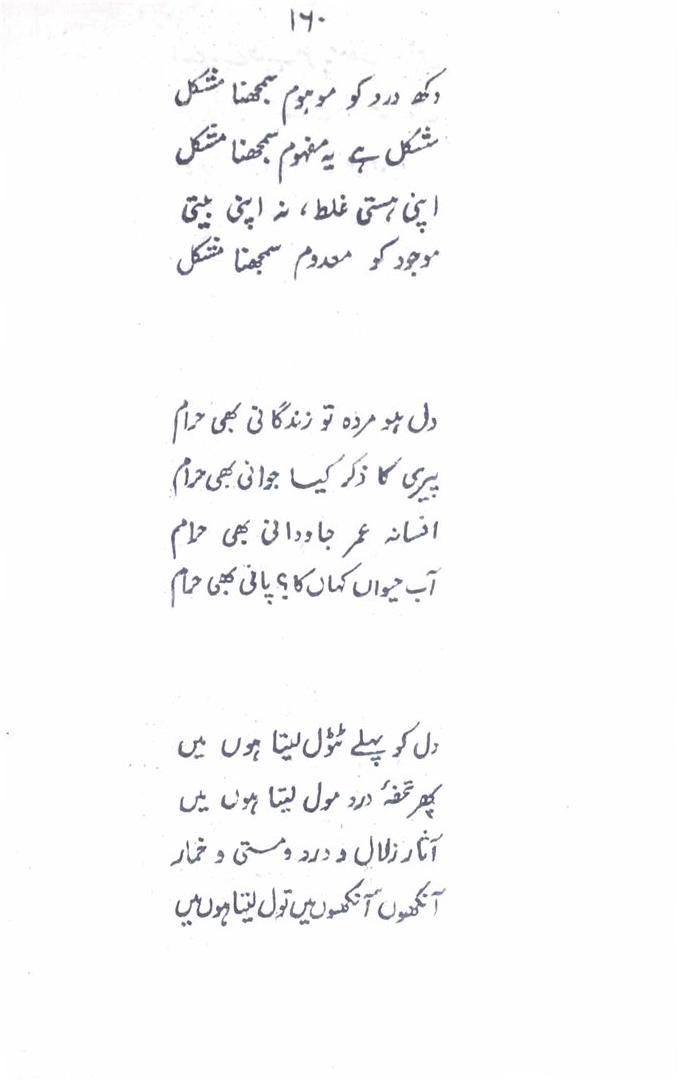 ۱۶۰
دکھ درد کو موہوم سمجھنا مشکل
مشکل ہے یہ مفہوم سمجھنا مشکل
اپنی ہستی غلط، نہ اپنی بیتی
موجود کو معدوم سمجھنا مشکل
دل ہو مردہ تو زندگانی بھی حرام
پیری کا ذکر کیا جوانی بھی حرام
افسانہ عمر جاودانی بھی حرام
آب حیواں کہاں کا؟ پانی بھی حرام
دل کو پہلے ٹٹول لیتا ہوں میں
پھر تحفۂ درد مول لیتا ہوں میں
آثار زلال و درد و مستی و خمار
آنکھوں آنکھوں میں تول لیتا ہوں میں